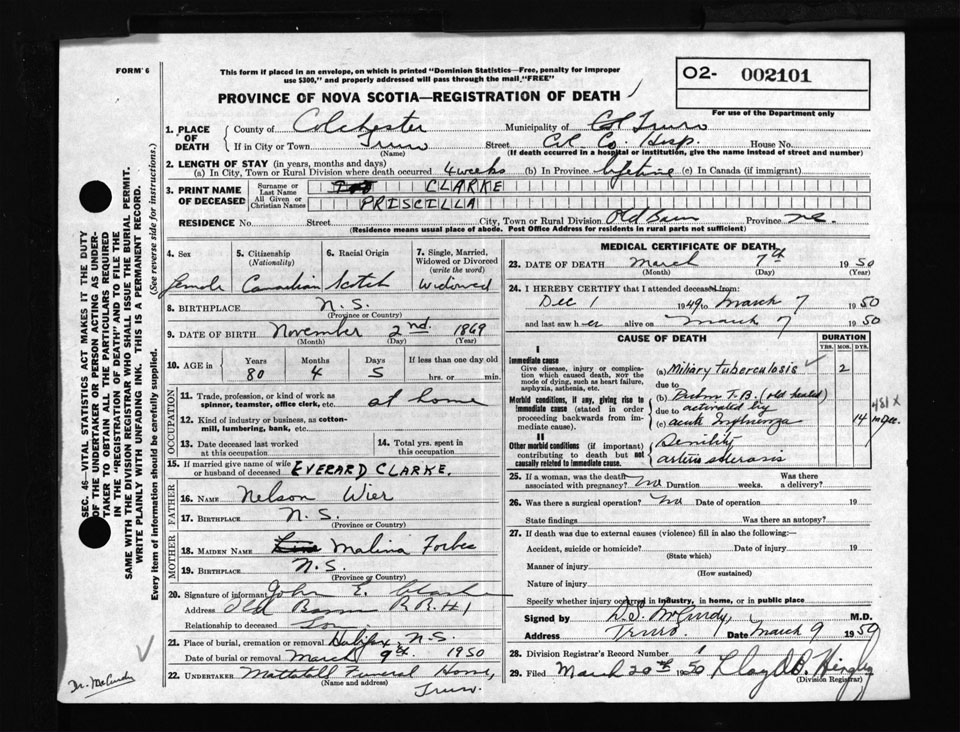 FORM 6
This form if placed in an envelope, on which is printed "Dominion Statistics—Free, penalty for improper
use $300," and properly addressed will pass through the mail "FREE"
02- 002101
PROVINCE OF NOVA SCOTIA—REGISTRATION OF DEATH
For use of the Department only
1. PLACE OF DEATH
County of Colchester Municipality of Col Truro
If in City or Town Truro (Name) Street Col. Co. Hosp House No.
(If death occurred in a hospital or institution, give the name instead of street and number)
2. LENGTH OF STAY (in years, months and days)
(a) In City, Town or Rural Division where death occurred 4 weeks (b) In Province lifetime (c) In Canada (if immigrant)
3. PRINT NAME OF DECEASED
Surname or Last Name CLARKE
All Given or Christian Names PRISCILLA
RESIDENCE No. Street City, Town or Rural Division Old Barn Province N.S.
(Residence means usual place of abode. Post Office Address for residents in rural parts not sufficient)
4. Sex 5. Citizenship (Nationality) 6. Racial Origin 7. Single, Married, Widowed or Divorced (write the word)
female Canadian Scotch Widowed
8. BIRTHPLACE N.S.
(Province or Country)
9. DATE OF BIRTH November 2nd. 1869
(Month) (Day) (Year)
10. AGE in Years Months Days If less than one day old
80 4 5 hrs. or min.
OCCUPATION
11. Trade, profession, or kind of work as spinner, teamster, office clerk, etc. at home
12. Kind of industry or business, as cotton-mill, lumbering, bank, etc.
13. Date deceased last worked at this occupation 14. Total yrs. spent in this occupation
15. If married give name of wife or husband of deceased EVERARD CLARKE.
FATHER
16. NAME Nelson Wier
17. BIRTHPLACE N.S.
(Province or Country)
MOTHER
18. MAIDEN NAME Malina Forbes
19. BIRTHPLACE N.S.
(Province or Country)
20. Signature of informant John E. Clarke
Address Old Barns R.R. #1
Relationship to deceased Son
21. Place of burial, cremation or removal Halifax, N.S.
Date of burial or removal March 9th. 1950
22. UNDERTAKER Mattatall Funeral Home,
(Name and address) Truro.
MEDICAL CERTIFICATE OF DEATH
23. DATE OF DEATH March 7th 1950
(Month) (Day) (Year)
24. I HEREBY CERTIFY that I attended deceased from:
Dec 1 1949 to March 7 1950
and last saw her alive on March 7 1950
CAUSE OF DEATH DURATION
YRS. MOS. DYS.
I
Immediate cause
Give disease, injury or complication which caused death, NOT the mode of dying, such as heart failure, asphyxia, asthenia, etc.
(a) Miliary tuberculosis 2
due to
Morbid conditions, if any, giving rise to immediate cause (stated in order proceeding backwards from immediate cause).
(b) Pulm T.B. (old healed)
due to activated by
(c) acute Influenza 14
481X
II
Other morbid conditions (if important) contributing to death but not causally related to immediate cause.
Senility
arterio sclerosis
25. If a woman, was the death associated with pregnancy? No Duration weeks. Was there a delivery?
26. Was there a surgical operation? No Date of operation 19
State findings Was there an autopsy?
27. If death was due to external causes (violence) fill in also the following:—
Accident, suicide or homicide? Date of injury 19
(State which)
Manner of injury
(How sustained)
Nature of injury
Specify whether injury occurred in industry, in home, or in public place
Signed by D.S. McCurdy, M.D.
Address Truro. Date March 9 1950
28. Division Registrar's Record Number
29. Filed March 20th 1950 Lloyd B. Hingley
(Division Registrar)
SEC. 46—VITAL STATISTICS ACT MAKES IT THE DUTY
OF THE UNDERTAKER OR PERSON ACTING AS UNDER-
TAKER TO OBTAIN ALL THE PARTICULARS REQUIRED
IN THE "REGISTRATION OF DEATH" AND TO FILE THE
SAME WITH THE DIVISION REGISTRAR WHO SHALL ISSUE THE BURIAL PERMIT.
WRITE PLAINLY WITH UNFADING INK. THIS IS A PERMANENT RECORD.
Every item of information should be carefully supplied. (See reverse side for instructions.)
Dr. McCurdy